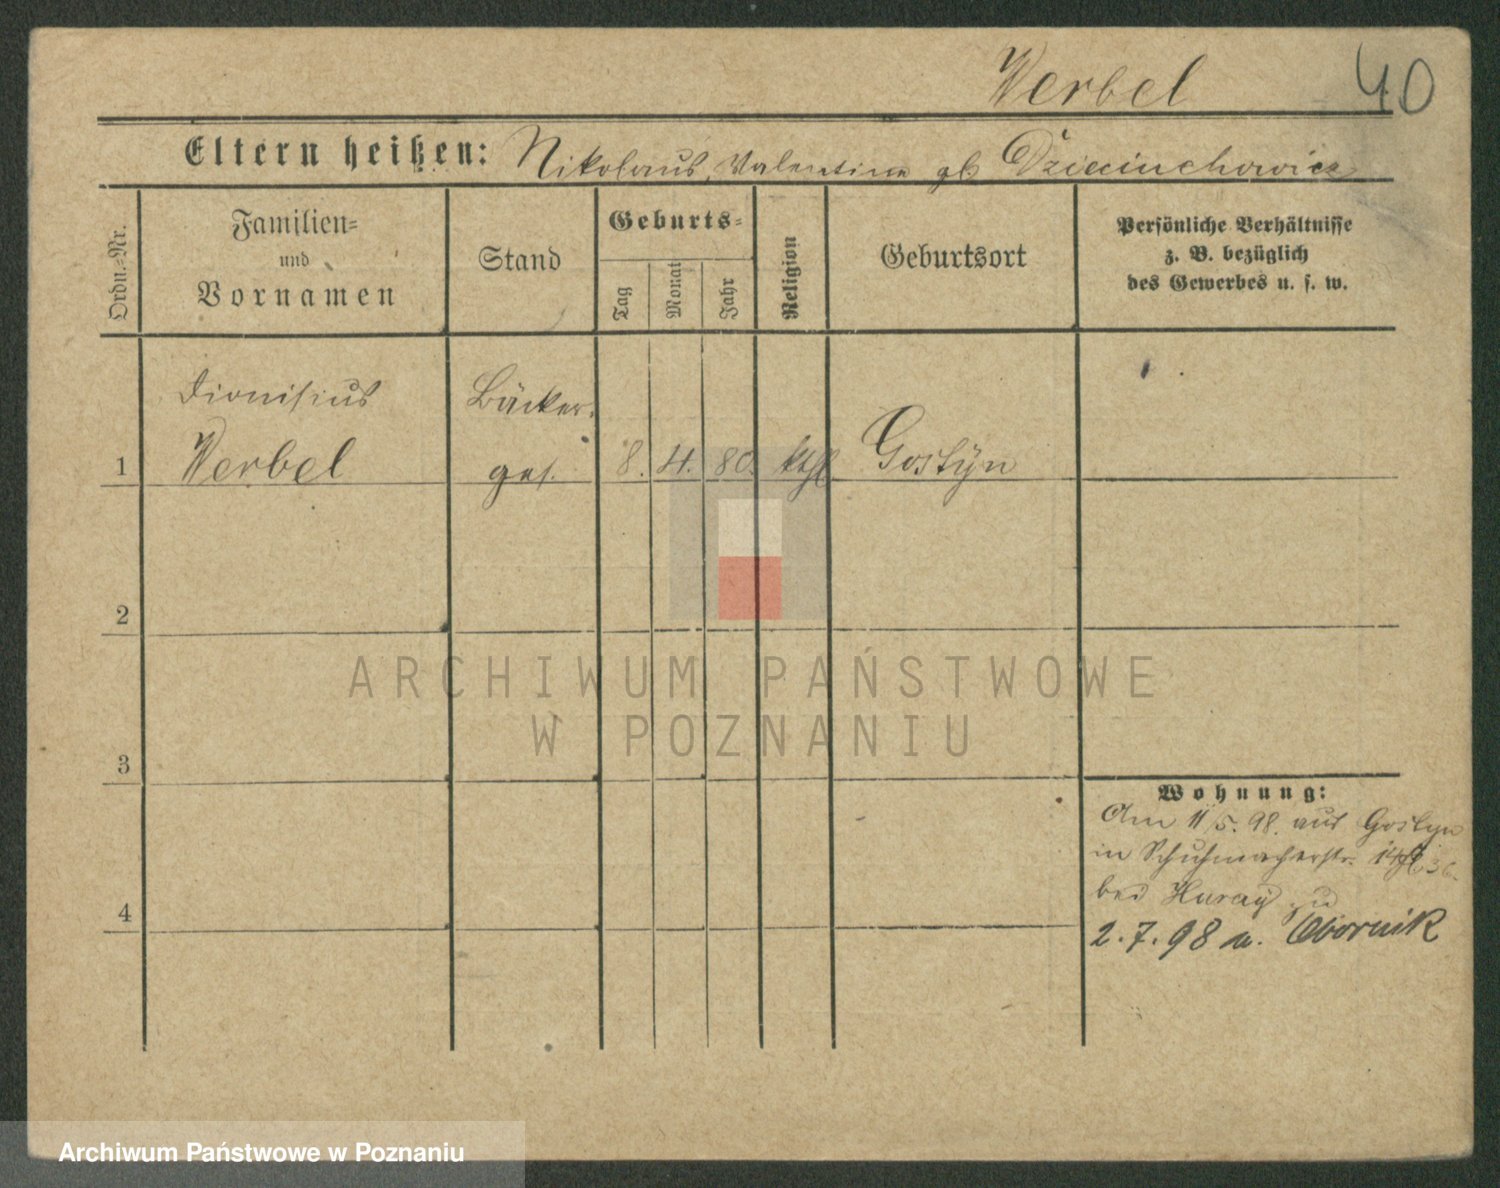 Werbel 40
Eltern heißen: Nikolaus, Valentine gb Dzieciuchowicz
Ordn.-Nr.
Familien-
und
Vornamen
Stand
Geburts-
Tag
Monat
Jahr
Religion
Geburtsort
Persönliche Verhältnisse
z. B. bezüglich
des Gewerbes u. s. w.
Dionisius Bäcker.
1 Werbel ges. 8. 4. 80. kthl Gostÿn
2
ARCHIWUM PAŃSTWOWE
W POZNANIU
3
Wohnung:
Am 11/5. 98. aus Gostyn
in Schuhmacherstr. 36.
bei zu
4
2.7.98 n. Obornik
Archiwum Państwowe w Poznaniu